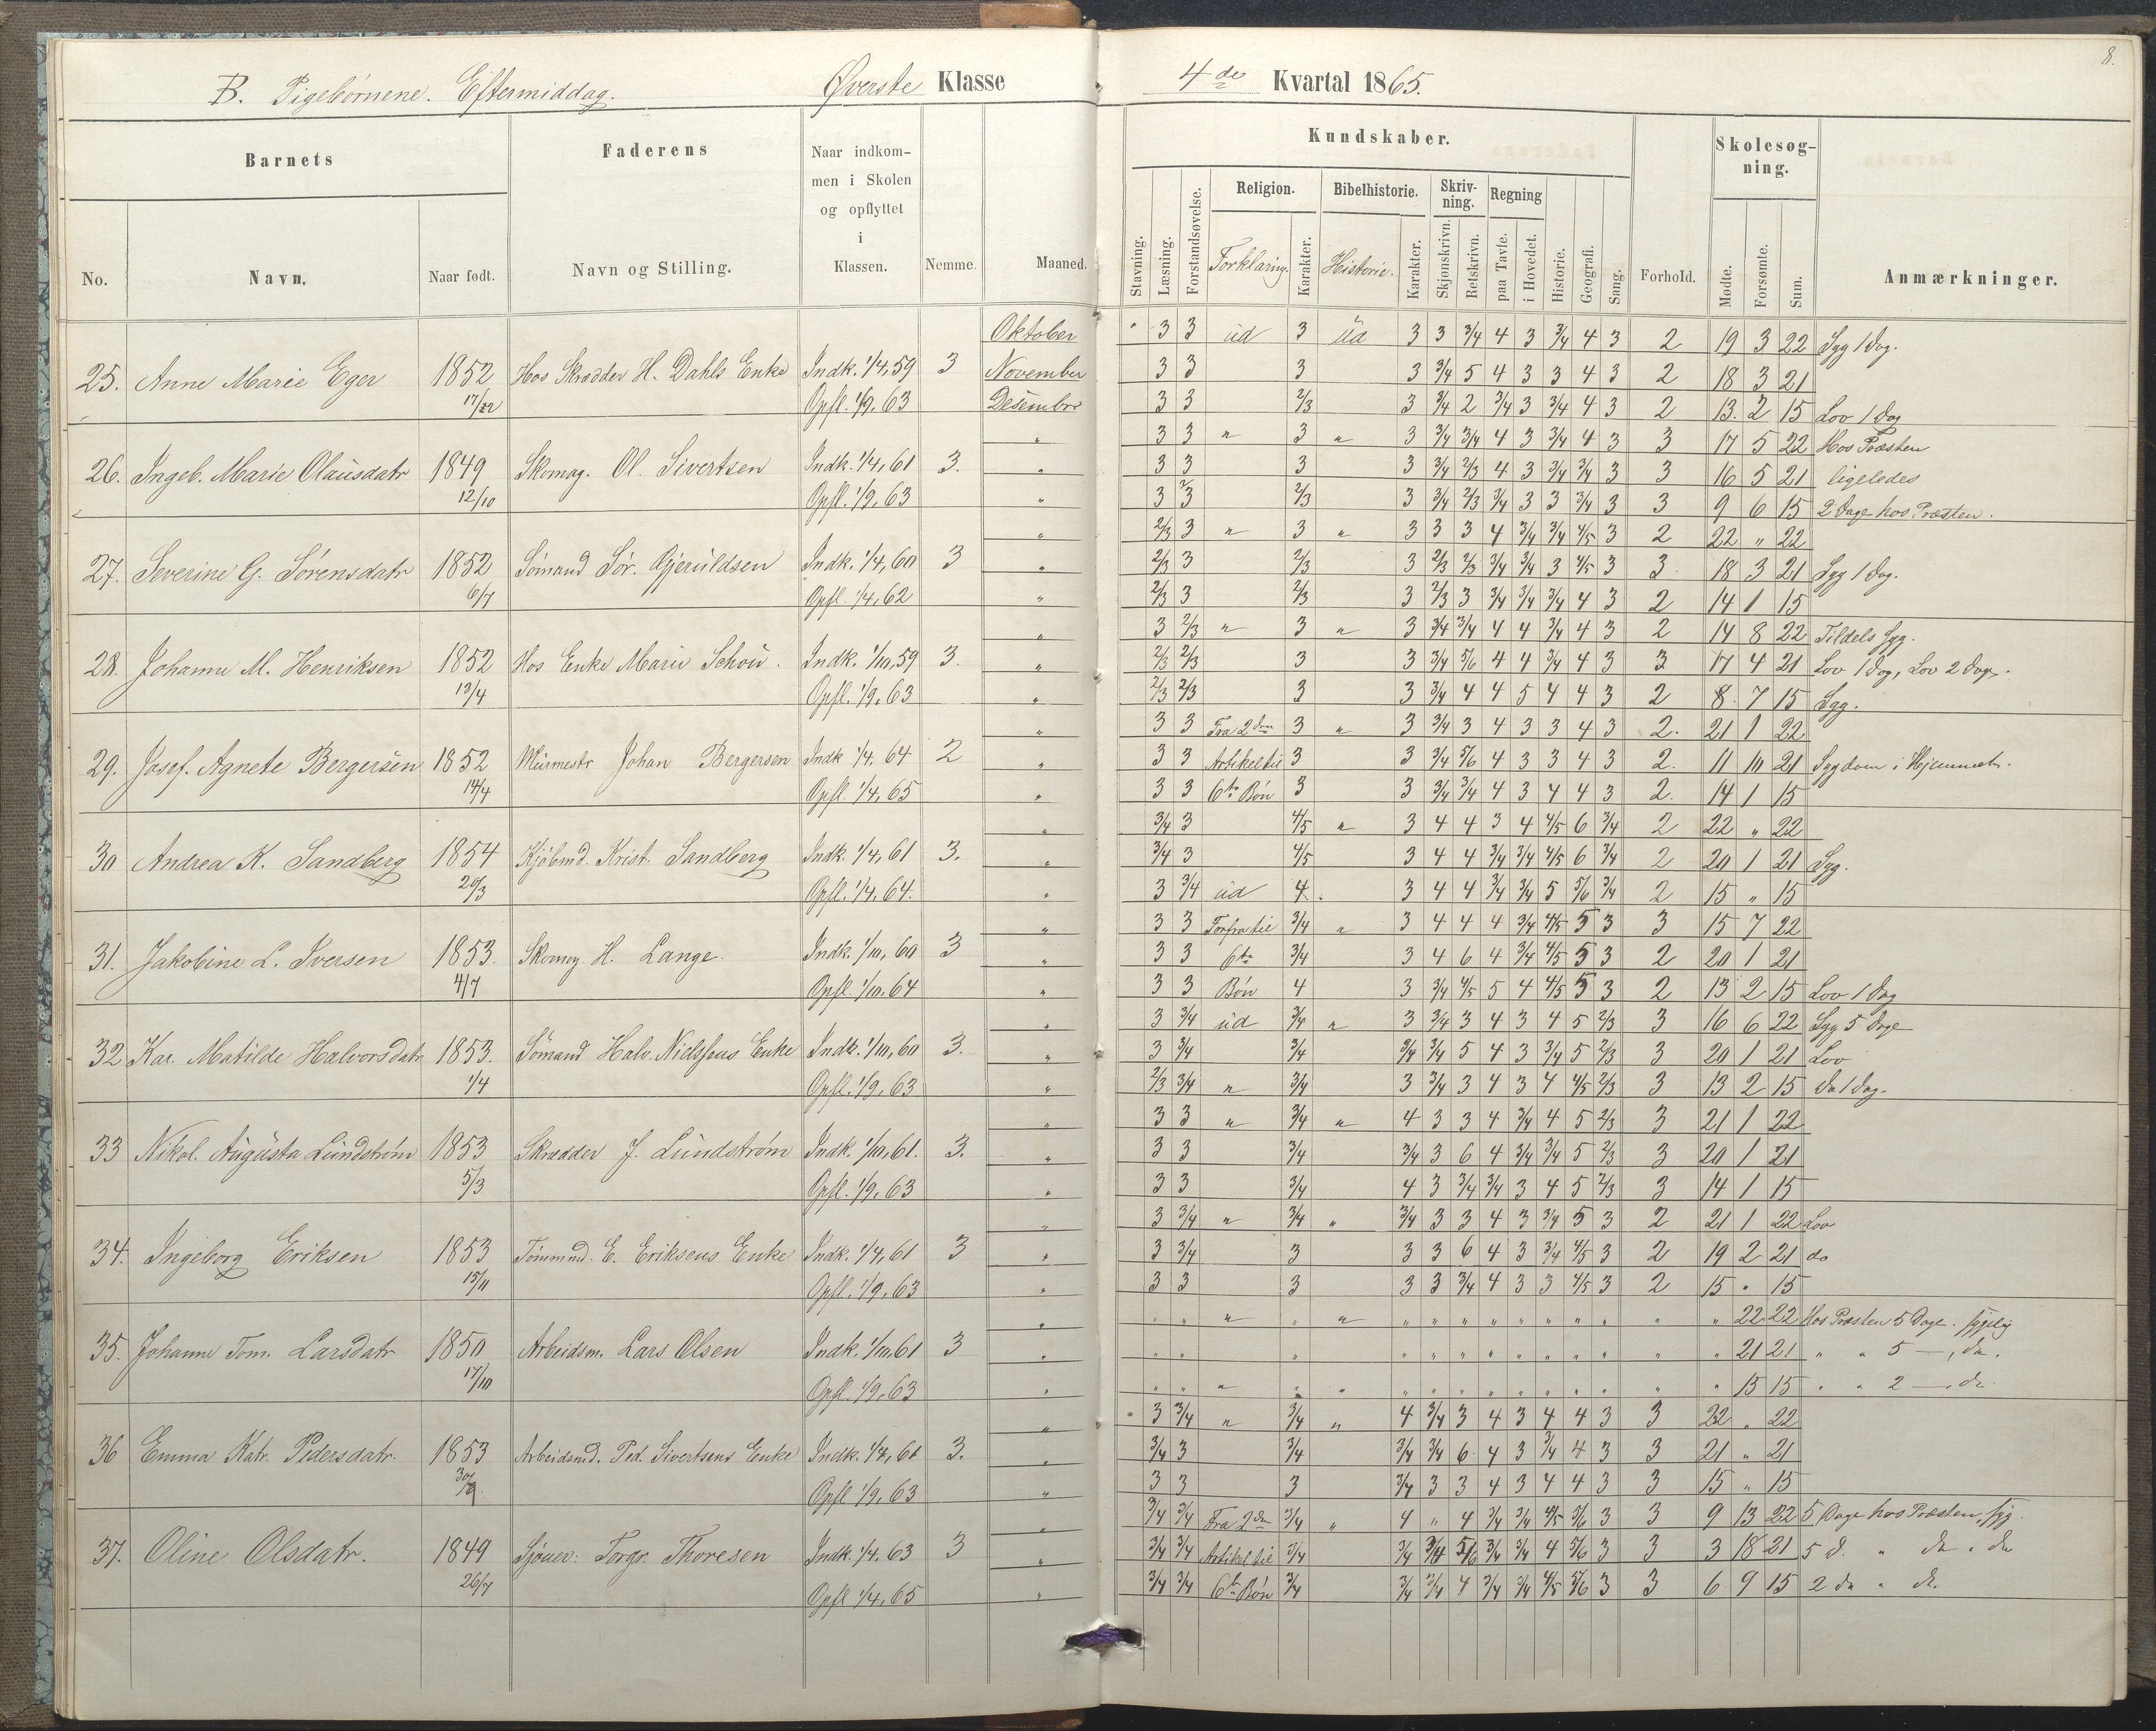 8.
B. Pigebörnene. Eftermiddag. Øverste Klasse 4de Kvartal 1865.
Barnets Faderens Naar indkommen i Skolen og opflyttet i Klassen. Nemme. Maaned. Kundskaber. Forhold. Skolesøgning. Anmærkninger.
No. Navn. Naar født. Navn og Stilling.
Stavning. Læsning. Forstandsøvelse. Religion. Forklaring. Karakter. Bibelhistorie. Historie. Karakter. Skrivning. Skjønskrivn. Retskrivn. Regning paa Tavle. i Hovedet. Historie. Geografi. Sang. Mødte. Forsømte. Sum.
Oktober " 3 3 ud 3 ud 3 3 3/4 4 3 3/4 4 3 2 19 3 22 Syg 1 Dag.
25. Anne Marie Eger 1852 Hos Skrædder H. Dahls Enke Indk. 1/4, 59 3 November 3 3 3 3 3/4 5 4 3 3 4 3 2 18 3 21
17/12 Opfl. 1/9, 63 Desember 3 3 2/3 3 3/4 2 3/4 3 3/4 4 3 2 13. 2 15 Lov 1 Dag
" 3 3 " 3 " 3 3/4 3/4 4 3 3/4 4 3 3 17 5 22 Hos Præsten
26. Ingeb. Marie Olausdatr 1849 Skomag. Ol. Sivertsen Indk. 1/4, 61 3. " 3 3 3 3 3/4 2/3 4 3 3/4 3/4 3 3 16 5 21 ligeledes
12/10 Opfl. 1/9, 63 " 3 3 2/3 3 3/4 2/3 3/4 3 3 3/4 3 3 9 6 15 2 Dage hos Præsten.
" 2/3 3 " 3 " 3 3 3 4 3/4 3/4 4/5 3 2 22 " 22
27. Severine G. Sörensdatr 1852 Sömand Sör. Gjeruldsen Indk. 1/4, 60 3 " 2/3 3 2/3 3 2/3 2/3 3/4 3/4 3 4/5 3 3 18 3 21 Syg 1 Dag.
6/7 Opfl. 1/4, 62 " 2/3 3 2/3 3 2/3 3 3/4 3/4 3/4 4 3 2 14 1 15
" 3 2/3 " 3 " 3 3/4 3/4 4 4 3/4 4 3 2 14 8 22 Tildels syg.
28. Johanne M. Henriksen 1852 Hos Enke Marie Schou. Indk. 1/10, 59 3. " 2/3 2/3 3 3 3/4 5/6 4 4 3/4 4 3 3 17 4 21 Lov 1 Dag, Lov 2 Dage.
13/4 Opfl. 1/9, 63 " 2/3 2/3 3 3 3/4 4 4 5 4 4 3 2 8. 7 15 Syg.
" 3 3 Fra 2den 3 " 3 3/4 3 4 3 3 4 3 2. 21 1 22
29. Josef. Agnete Bergersen 1852 Murmestr Johan Bergersen Indk 1/4, 64 2 " 3 3 Artikel til 3 3 3/4 5/6 4 3 3 4 3 2. 11 10 21 Sygdom i Hjemmet.
14/4 Opfl. 1/4, 65 " 3 3 6te Bön 3 3 3/4 3/4 4 3 4 4 3 2. 14 1 15
" 3/4 3 4/5 " 3 4 4 3 4 4/5 6 3/4 2 22 " 22
30 Andrea K. Sandberg 1854 Kjöbmd. Krist. Sandberg Indk. 1/4, 61 3. " 3/4 3 4/5 3 4 4 3/4 3/4 4/5 6 3/4 2 20 1 21 Syg.
20/3 Opfl. 1/4, 64. " 3 3/4 ud 4. 3 4 4 3/4 3/4 5 5/6 3/4 2 15 " 15
" 3 3 Forfra til 3/4 " 3 4 4 4 3/4 4/5 5 3 3 15 7 22
31. Jakobine L. Iversen 1853. Skomag. H. Lange. Indk. 1/10, 60 3 " 3 3 6te 3/4 3 4 6 4 3/4 4/5 5 3 2 20 1 21
4/7 Opfl. 1/10, 64 " 3 3 Bön 4 3 3/4 4/5 5 4 4/5 5 3 2 13 2 15 Lov 1 Dag
" 3 3/4 ud 3/4 " 3 3/4 3 4 3 4 5 2/3 3 16 6 22 Syg 5 Dage
32 Kar. Matilde Halvorsdatr 1853. Sömand Halv. Nielsens Enke Indk. 1/10, 60 3. " 3 3/4 3/4 3/4 3/4 5 4 3 3/4 5 2/3 3 20 1 21 Lov
1/4 Opfl. 1/9, 63 " 2/3 3/4 " 3/4 3 3/4 3 4 3 4 4/5 2/3 3 13 2 15 do 1 Dag.
" 3 3 " 3/4 " 4 3 3 4 3/4 4 5 2/3 3 21 1 22
33 Nikol. Augusta Lundström 1853 Skrædder J. Lundström Indk. 1/10, 61. 3. " 3 3 3/4 3/4 3 6 4 3/4 3/4 5 2/3 3 20 1 21
5/3 Opfl. 1/9, 63 " 3 3 3/4 4 3 3/4 3/4 3 4 5 2/3 3 14 1 15
" 3 3/4 " 3/4 " 3/4 3 3 4 3 3/4 5 3 2 21 1 22 Lov
34. Ingeborg Eriksen 1853 Tömmmd. E. Eriksens Enke Indk. 1/4, 61 3 " 3 3/4 3 3 3 6 4 3 3/4 4/5 3 2 19 2 21 do
15/11 Opfl. 1/9, 63 " 3 3 3 3 3 3/4 4 3 3 4/5 3 2 15 " 15
" " " " " " " " " " " " " " " " 22 22 Hos Præsten 5 Dage.
35. Johanne Tom. Larsdatr 1850 Arbeidsm. Lars Olsen Indk. 1/10, 61 3 " " " " " " " " " " " " " " " 21 21 " " 5 —, do.
17/10 Opfl. 1/9, 63 " " " " " " " " " " " " " " " " " 15 15 " " 2 —, do.
" " 3 3/4 " 3/4 " 4 3/4 3 4 3 4 4 3 3 22 " 22
36 Emma Katr. Pedersdatr. 1853 Arbeidsmd. Ped. Sivertsens Enke Indk. 1/4, 61 3. " 3/4 3 3/4 3/4 3/4 6 4 3 3/4 4 3 3 21 " 21
30/9 Opfl 1/9, 63 " 3 3 3 3/4 3 3 4 3 4 4 3 3 15 " 15
" 3/4 3/4 Fra 2den 3/4 " 4 " 4 3/4 3/4 4/5 5/6 3 3 9 13 22 5 Dage hos Præsten, syg.
37. Oline Olsdatr. 1849 Torgr. Thoresen Indk. 1/4, 63 3 " 3/4 3/4 Artikel til 3/4 3/4 3/4 5/6 3/4 3/4 4 5/6 3 3 3 18 21 5 d. " do " do
26/7 Opfl 1/4, 65 " 3/4 3/4 6te Bön 3/4 3/4 3/4 4 3/4 3/4 4/5 5/6 3 3 6 9 15 2 do " do.